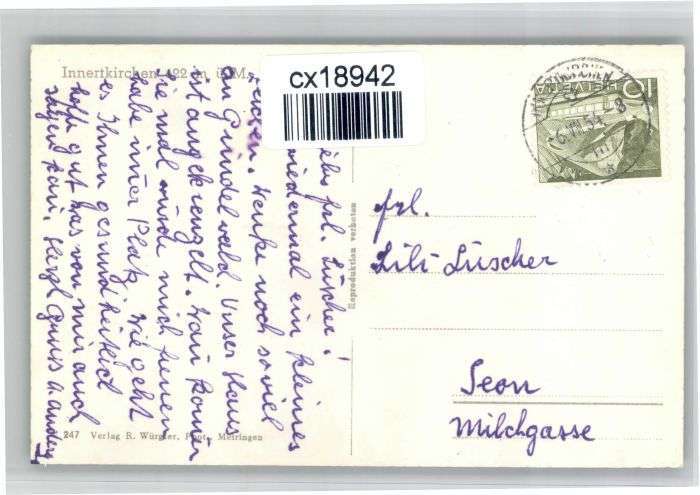 Innertkirchen 622 m ü. M.
cx18942
HELVETIA
10
frl. Lüscher!
wiedermal ein kleines
Zeichen. Danke noch so viel
an Grindelwald. Unser Haus
ist angekreuzelt. Wann können
Sie mal mich
habe immer Platz. Wie geht
es Ihnen gesundheitlich
hoffe gut was von mir auch
sagen kann. Herzl. Gruss
Reproduktion verboten
frl.
Lili Lüscher
Seon
Milchgasse
247 Verlag R. Würgler, Phot., Meiringen